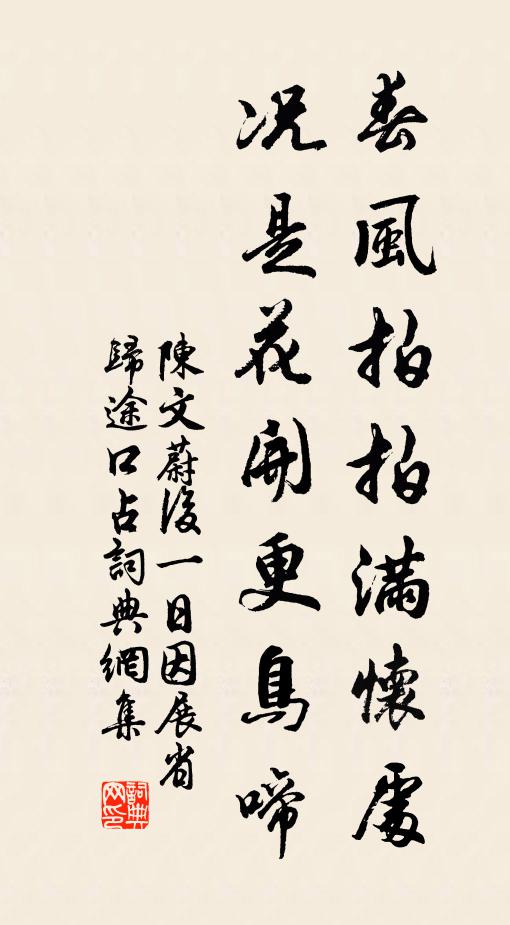 春風拍拍滿懷處
况是花開更鳥啼
陳文蔚後一日因展省
歸途口占詞典網集
詞典网印